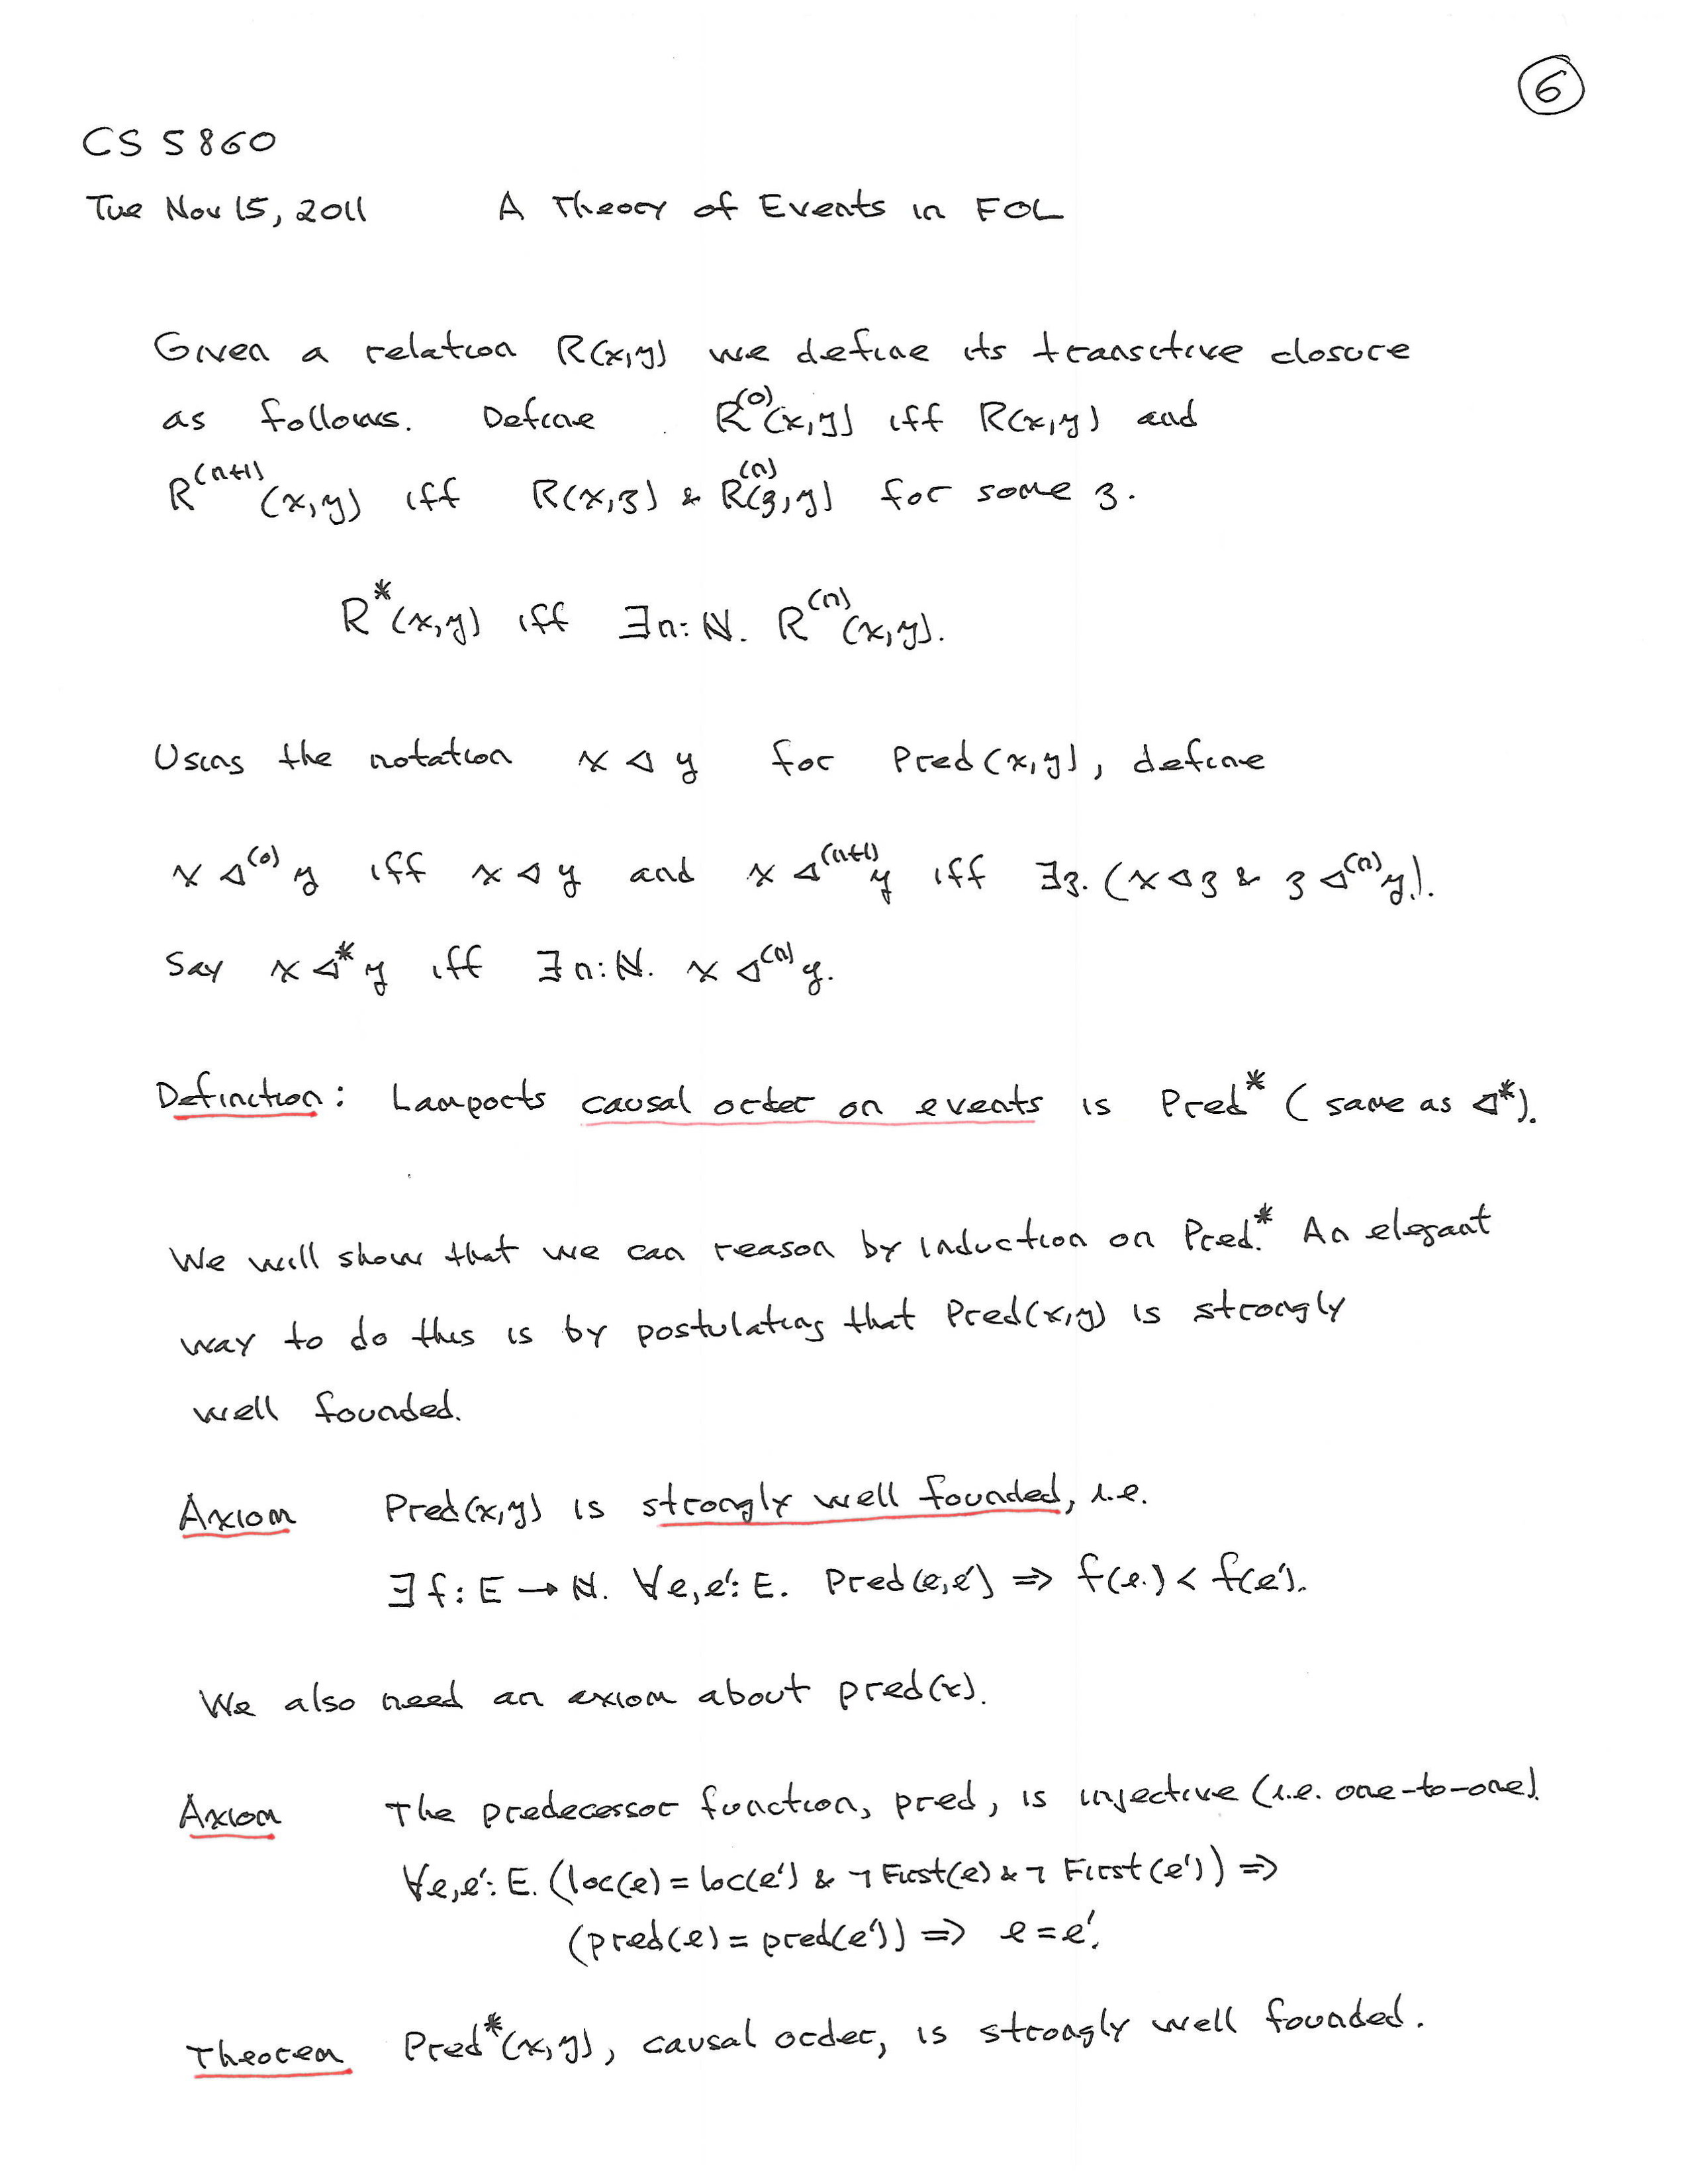 6
CS 5860
Tue Nov 15, 2011 A Theory of Events in FOL
Given a relation R(x,y) we define its transitive closure
as follows. Define R⁽⁰⁾(x,y) iff R(x,y) and
R⁽ⁿ⁺¹⁾(x,y) iff R(x,z) & R⁽ⁿ⁾(z,y) for some z.
R*(x,y) iff ∃n:ℕ. R⁽ⁿ⁾(x,y).
Using the notation x ◁ y for Pred(x,y), define
x ◁⁽⁰⁾ y iff x ◁ y and x ◁⁽ⁿ⁺¹⁾ y iff ∃z. (x ◁ z & z ◁⁽ⁿ⁾ y).
Say x ◁* y iff ∃n:ℕ. x ◁⁽ⁿ⁾ y.
Definition: Lamports causal order on events is Pred* (same as ◁*).
We will show that we can reason by induction on Pred*. An elegant
way to do this is by postulating that Pred(x,y) is strongly
well founded.
Axiom Pred(x,y) is strongly well founded, i.e.
∃f:E → ℕ. ∀e,e':E. Pred(e,e') ⇒ f(e) < f(e').
We also need an axiom about pred(x).
Axiom The predecessor function, pred, is injective (i.e. one-to-one).
∀e,e':E. (loc(e) = loc(e') & ¬ First(e) & ¬ First(e')) ⇒
(pred(e) = pred(e')) ⇒ e = e'.
Theorem Pred*(x,y), causal order, is strongly well founded.